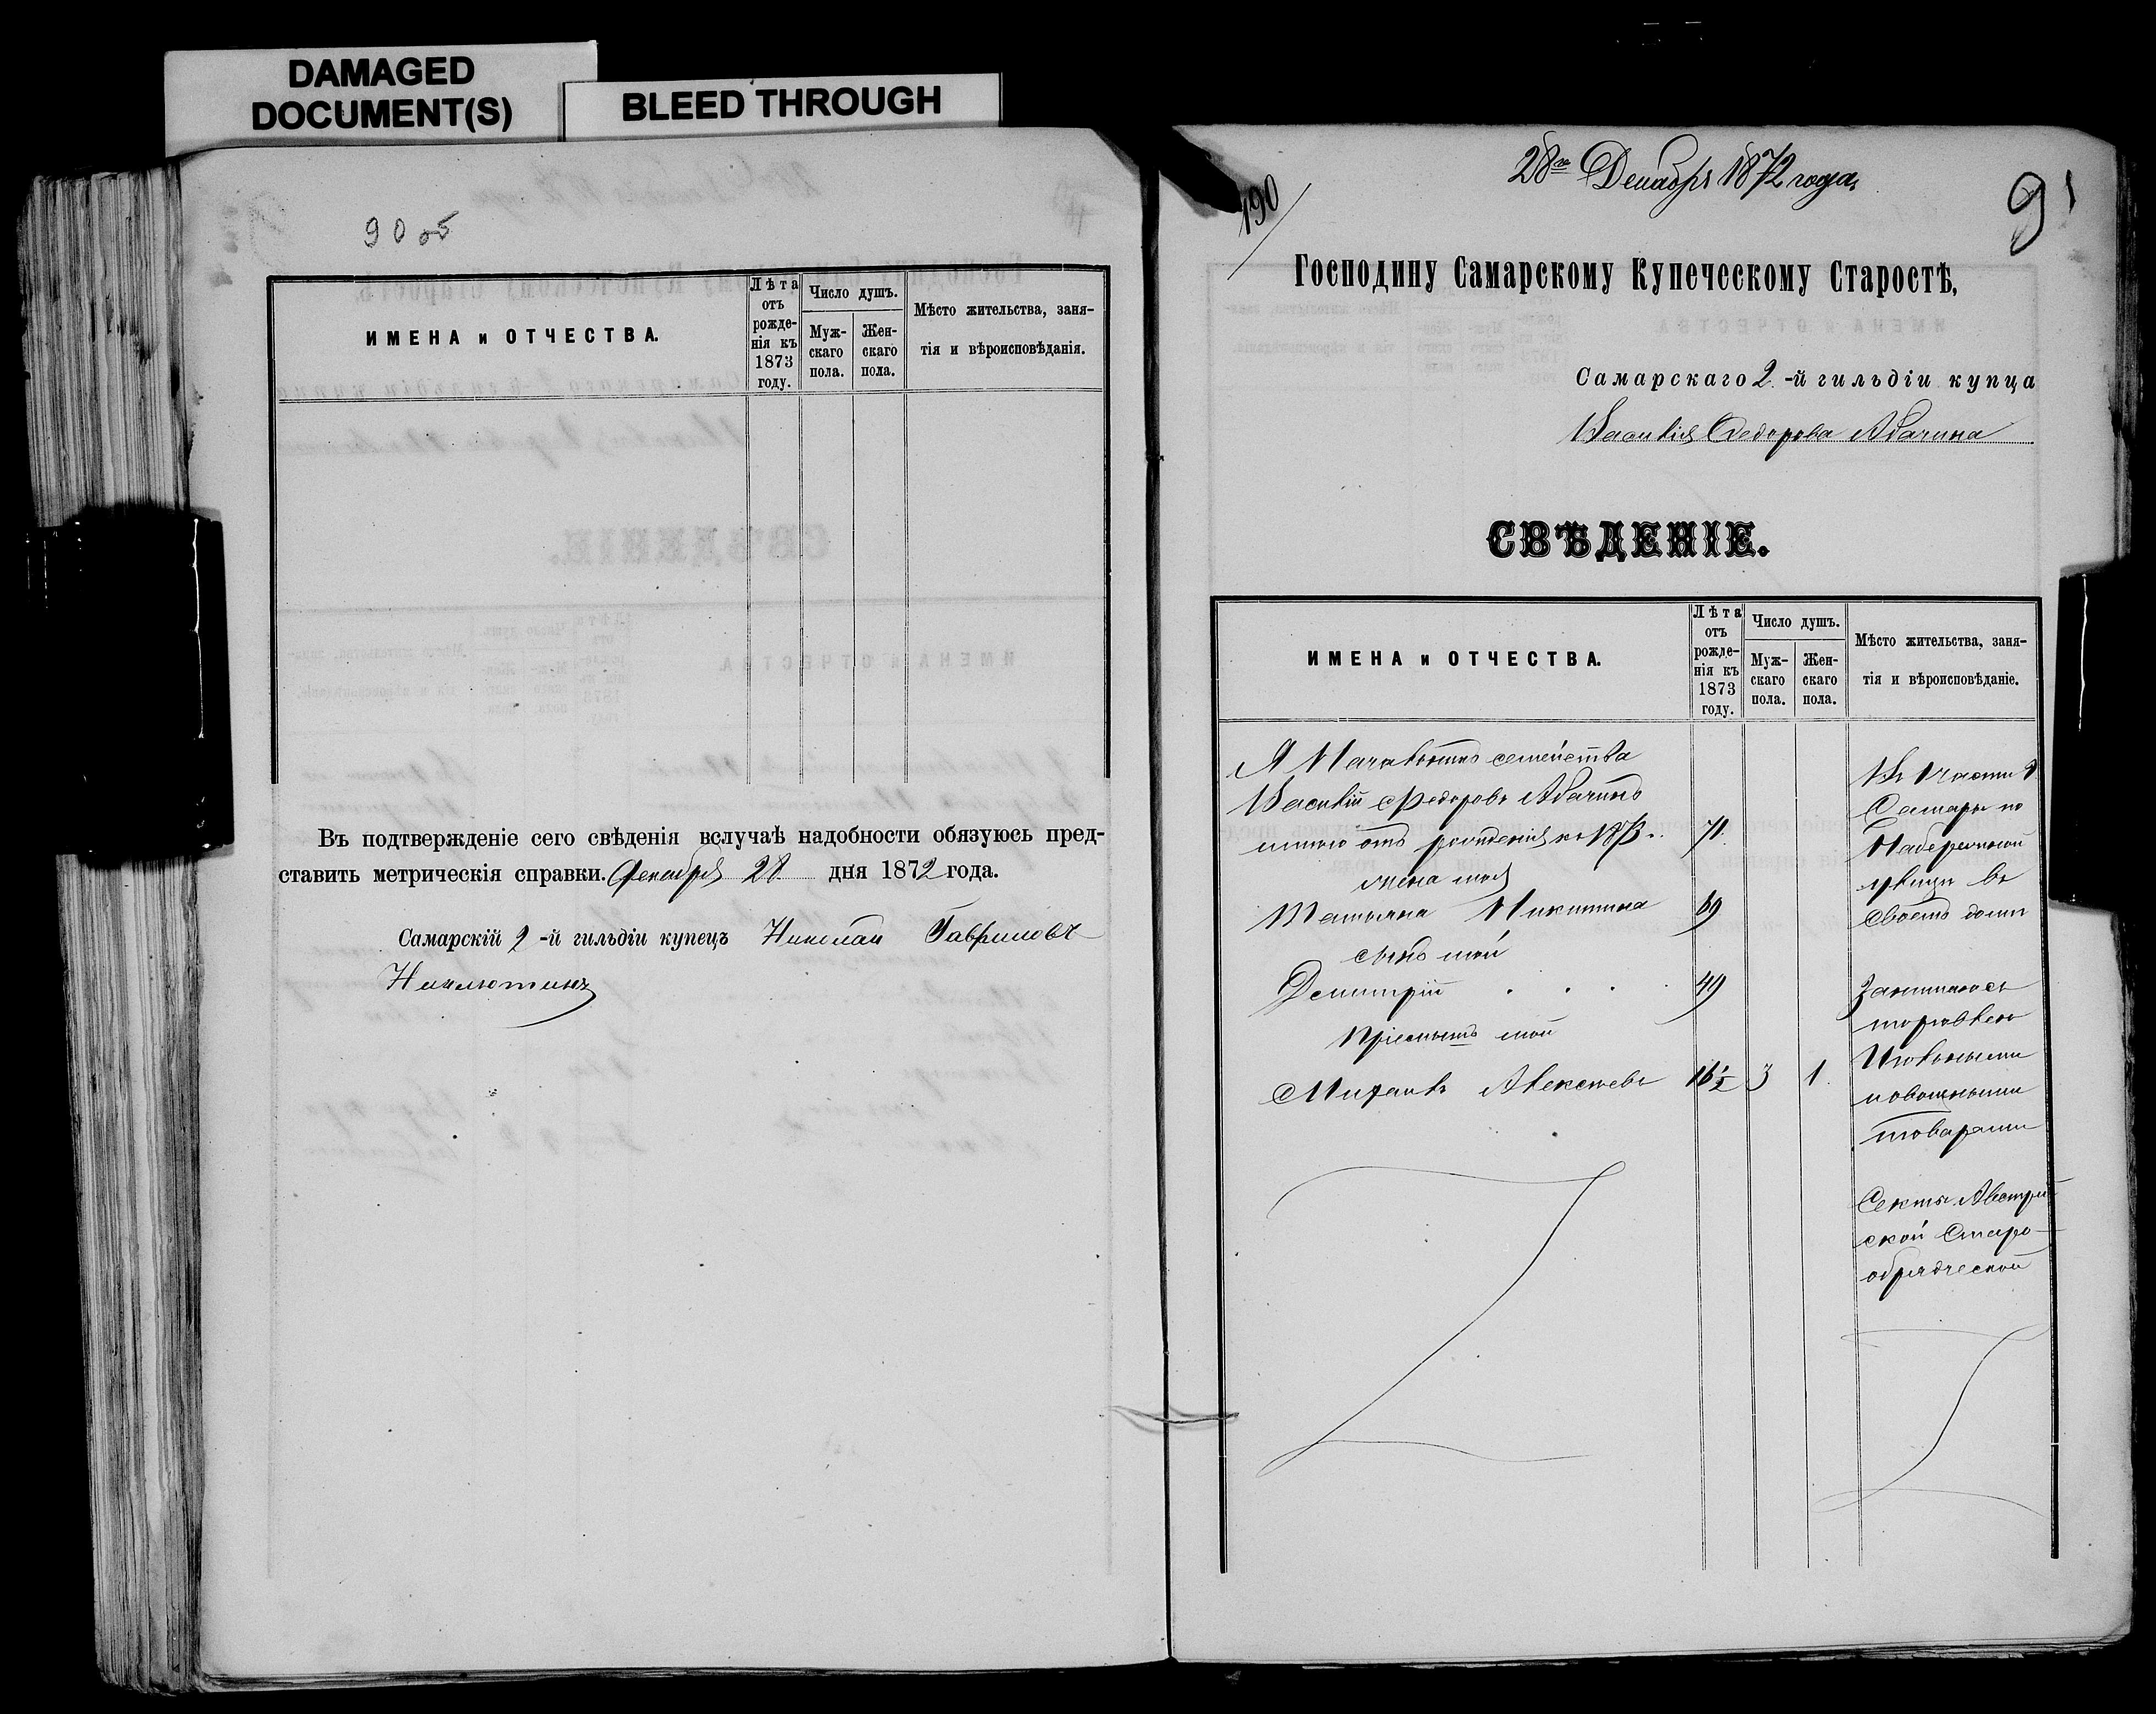 DAMAGED
DOCUMENT(S)
BLEED THROUGH
90 об
ИМЕНА и ОТЧЕСТВА.
Лѣта
отъ
рожде-
нія къ
1873
году.
Число душъ.
Муж-
скаго
пола.
Жен-
скаго
пола.
Мѣсто жительства, заня-
тія и вѣроисповѣданія.
Въ подтвержденіе сего свѣденія вслучаѣ надобности обязуюсь пред-
ставить метрическія справки. Декабря 28 дня 1872 года.
Самарскій 2-й гильдіи купецъ Николай Гавриловъ
190
28го Декабря 1872 года,
91
Господину Самарскому Купеческому Старостѣ,
Самарскаго 2.-й гильдіи купца
Василія Федорова Абачина
СВѢДЕНІЕ.
ИМЕНА и ОТЧЕСТВА.
Лѣта
отъ
рожде-
нія къ
1873
году.
Число душъ.
Муж-
скаго
пола.
Жен-
скаго
пола.
Мѣсто жительства, заня-
тія и вѣроисповѣданіе.
Я Началникъ семейства
Василій Федоровъ Абачинъ
отъ рожденія къ 1873 71.
жена моя
Татьяна Никитина 69
сынъ мой
Демитрій . . . . 49
Пріемышъ мой
Михаилъ Алексѣевъ 16½ 3 1.
Самары по
Набережной
улицѣ въ
своемъ доми
Занимаюсь
торговлею
товарами
Секты Австрій
ской Старо-
обрядческой